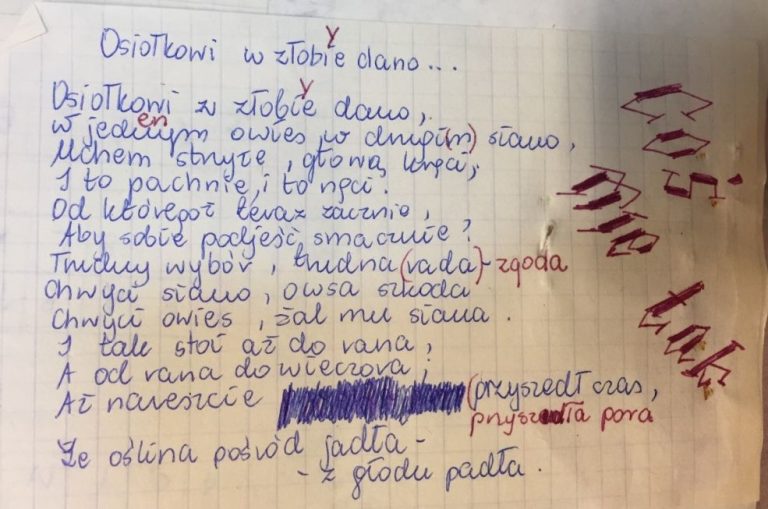 Osiołkowi w złobie dano...
y
Osiołkowi w złobie dano,
y
w jednym owies, w drugi(m) siano,
en
Uchem strzyże, głową kręci,
I to pachnie, i to nęci.
Od któregoż teraz zacznie,
Aby sobie podjeść smacznie?
Trudny wybór, trudna (rada) - zgoda
Chwyci siano, owsa szkoda
Chwyci owies, żal mu siana.
I tak stoi aż do rana,
A od rana do wieczora;
Aż nareszcie (przyszedł czas,
przyszła pora
Że oślina pośród jadła -
- z głodu padła.